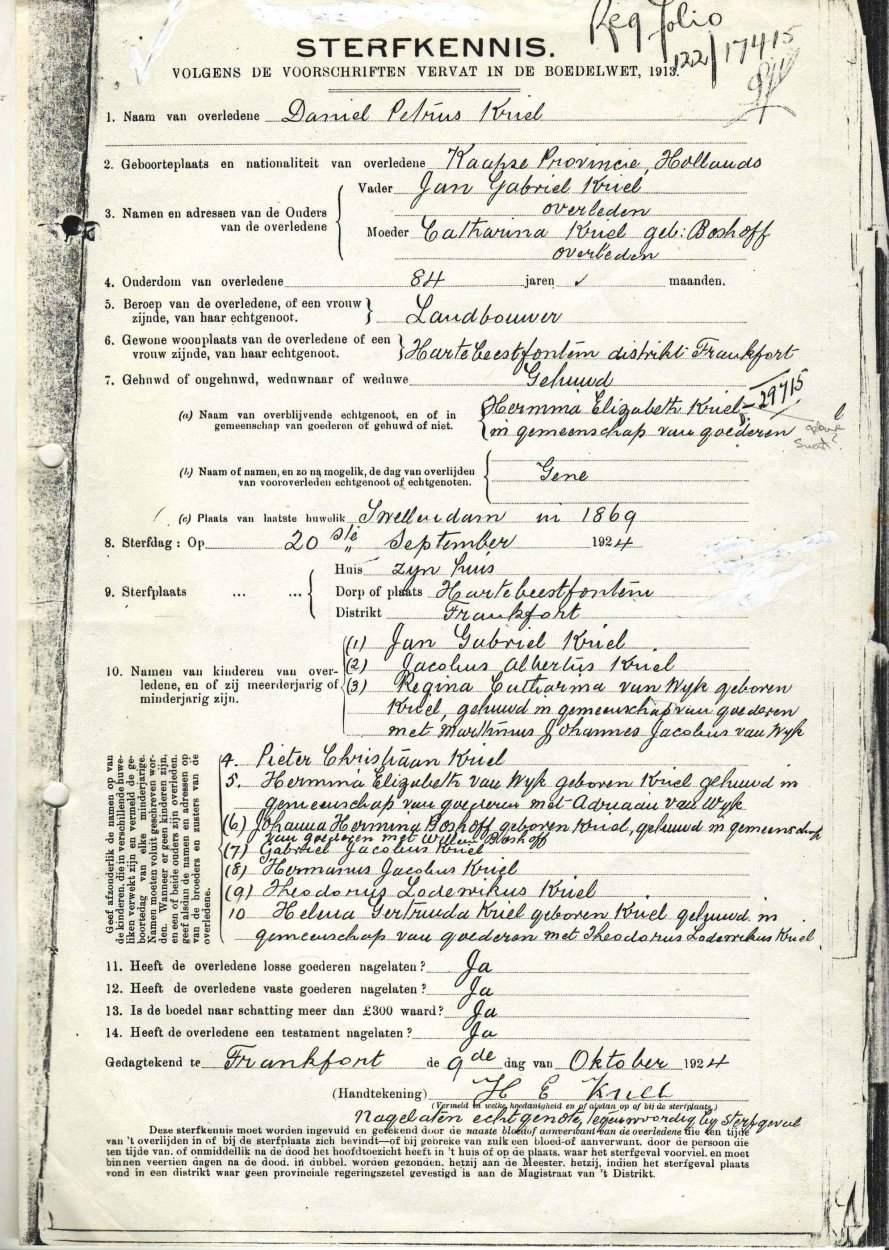 Reg folio
122/17415
STERFKENNIS.
VOLGENS DE VOORSCHRIFTEN VERVAT IN DE BOEDELWET, 1913.
1. Naam van overledene Daniel Petrus Kriel
2. Geboorteplaats en nationaliteit van overledene Kaapse Provincie, Hollands
3. Namen en adressen van de Ouders van de overledene
Vader Jan Gabriel Kriel
overleden
Moeder Catharina Kriel geb: Boshoff
overleden
4. Ouderdom van overledene 84 jaren maanden.
5. Beroep van de overledene, of een vrouw
zijnde, van haar echtgenoot. Landbouwer
6. Gewone woonplaats van de overledene of een
vrouw zijnde, van haar echtgenoot. Hartebeestfontein distrikt Frankfort
7. Gehuwd of ongehuwd, weduwnaar of weduwe Gehuwd
(a) Naam van overblijvende echtgenoot, en of in
gemeenschap van goederen of gehuwd of niet.
Hermina Elizabeth Kriel - 29715
in gemeenschap van goederen
(b) Naam of namen, en zo na mogelik, de dag van overlijden
van vooroverleden echtgenoot of echtgenoten. Gene
(c) Plaats van laatste huwelik Swellendam in 1869
8. Sterfdag: Op 20ste September 1924
9. Sterfplaats ... ...
Huis zyn huis
Dorp of plaats Hartebeestfontein
Distrikt Frankfort
10. Namen van kinderen van over-
ledene, en of zij meerderjarig of
minderjarig zijn.
(1) Jan Gabriel Kriel
(2) Jacobus Albertus Kriel
(3) Regina Catharina van Wyk geboren
Kriel, gehuwd in gemeenschap van goederen
met Marthinus Johannes Jacobus van Wyk
Geef afzonderlik de namen op van
de kinderen, die in verschillende huwe-
liken verwekt zijn en vermeld de ge-
boortedag van elke minderjarige.
Namen moeten voluit geschreven wor-
den. Wanneer er geen kinderen zijn,
en een of beide ouders zijn overleden,
geef alsdan de namen en adressen op
van de broeders en zusters van de
overledene.
4. Pieter Christiaan Kriel
5. Hermina Elizabeth van Wyk geboren Kriel gehuwd in
gemeenschap van goederen met Adriaan van Wyk
(6) Johanna Hermina Boshoff geboren Kriel, gehuwd in gemeenschap
van goederen met Willem Boshoff
(7) Gabriel Jacobus Kriel
(8) Hermanus Jacobus Kriel
(9) Theodorus Lodewikus Kriel
10 Helena Gertruida Kriel geboren Kriel gehuwd in
gemeenschap van goederen met Theodorus Lodewikus Kriel
11. Heeft de overledene losse goederen nagelaten? Ja
12. Heeft de overledene vaste goederen nagelaten? Ja
13. Is de boedel naar schatting meer dan £300 waard? Ja
14. Heeft de overledene een testament nagelaten? Ja
Gedagtekend te Frankfort de 9de dag van Oktober 1924
(Handtekening) H E Kriel
(Vermeld in welke hoedanigheid en of alsdan op of bij de sterfplaats)
Nagelaten echtgenote, tegenwoordig by sterfgeval
Deze sterfkennis moet worden ingevuld en getekend door de naaste bloed of aanverwant van de overledene die ten tijde
van 't overlijden in of bij de sterfplaats zich bevindt—of bij gebreke van zulk een bloed-of aanverwant, door de persoon die
ten tijde van, of onmiddellik na de dood het hoofdtoezicht heeft in 't huis of op de plaats, waar het sterfgeval voorviel, en moet
binnen veertien dagen na de dood, in dubbel, worden gezonden, hetzij aan de Meester, hetzij, indien het sterfgeval plaats
vond in een distrikt waar geen provinciale regeringszetel gevestigd is aan de Magistraat van 't Distrikt.